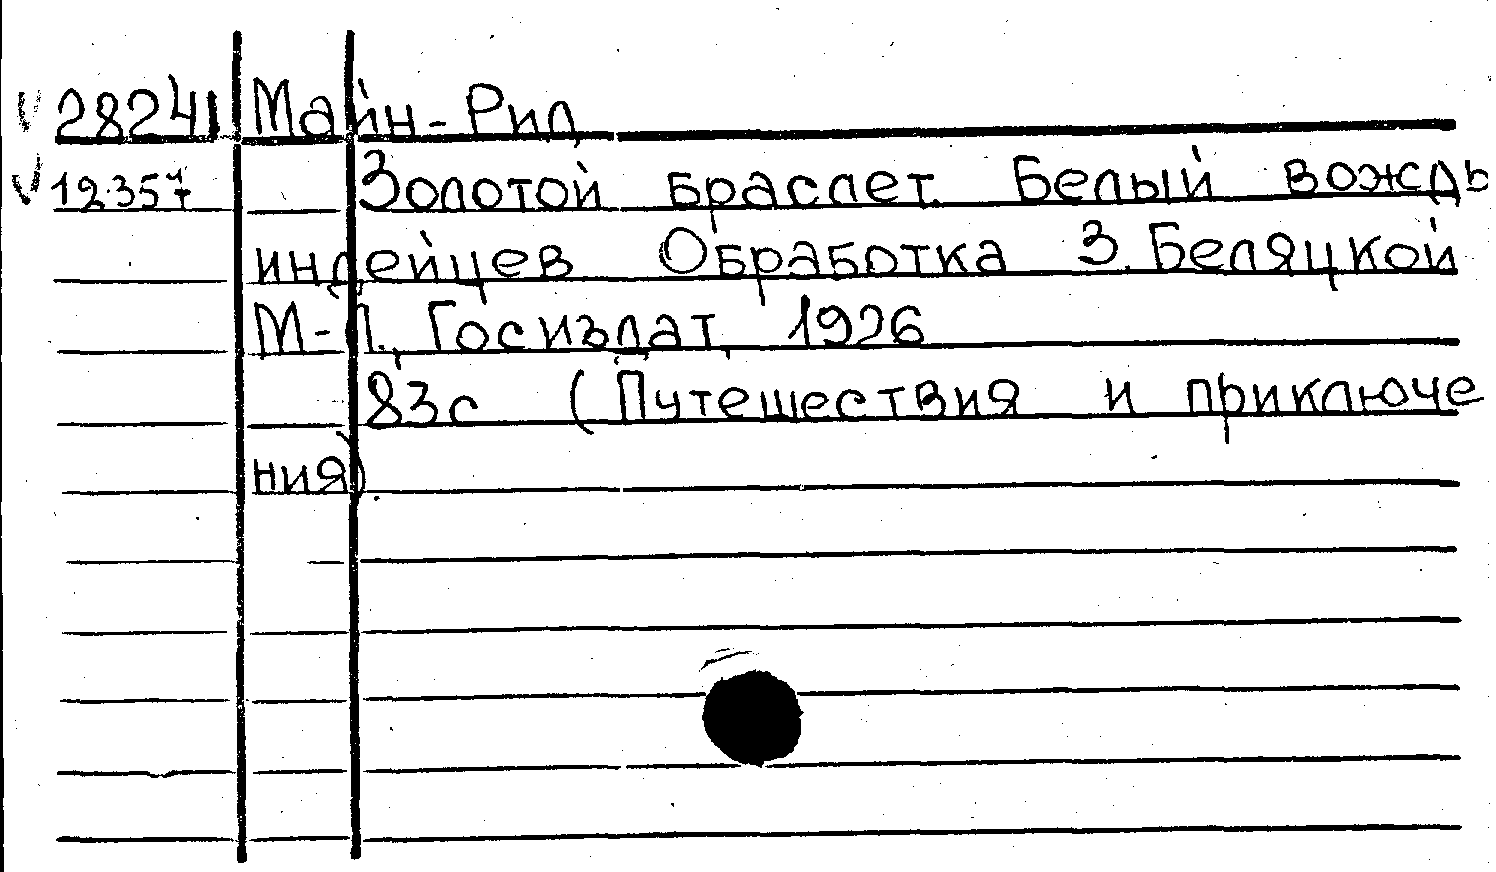 28241 Майн-Рид
12.357 Золотой браслет. Белый вождь
индейцев Обработка З. Беляцкой
М-Л., Госиздат, 1926
83с (Путешествия и приключе
ния)